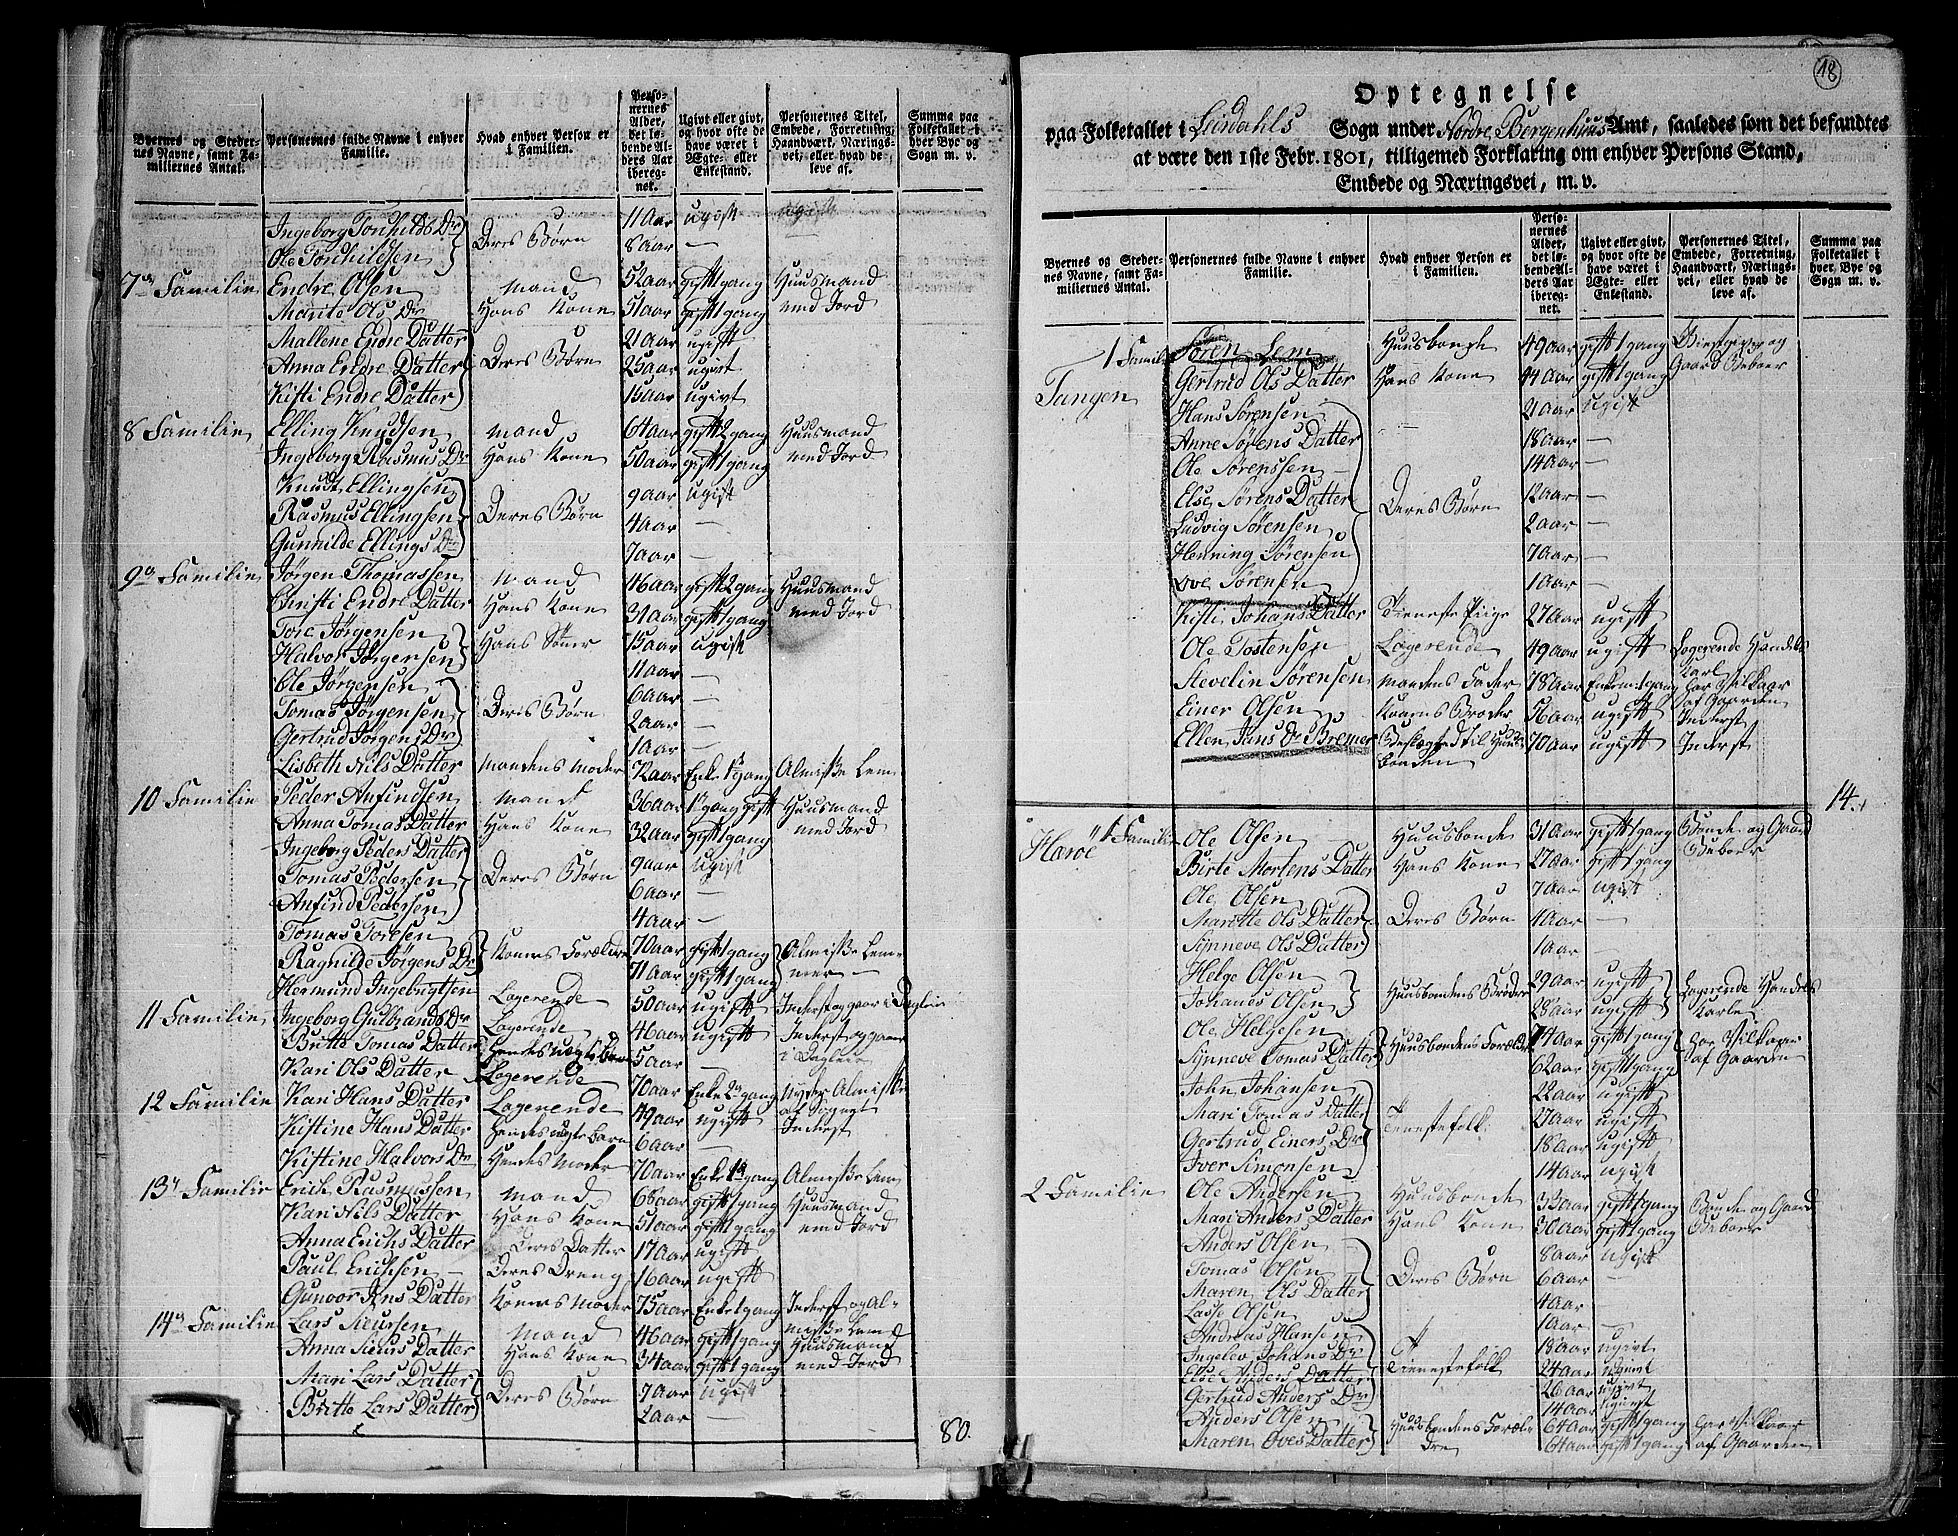 Byernes og Steder-
nes Navne, samt Fa-
miliernes Antal.
Personernes fulde Navne i enhver
Familie.
Hvad enhver Person er
i Familien.
Perso-
nernes
Alder,
det lø-
bende Al-
ders Aar
ibereg-
net.
Ugivt eller givt,
og hvor ofte de
have været i
Ægte- eller
Enkestand.
Personernes Titel,
Embede, Forretning,
Haandværk, Nærings-
vei, eller hvad de
leve af.
Summa paa
Folketallet i
hver Bye og
Sogn m. v.
Ingeborg Torchilds Dr 11 Aar ugift
Ole Torchildsen Deres Børn 8 Aar —
7de Familie Endre Olsen Mand 52 Aar gift 1 gang Huusmand
Marite Ols Dr Hans Kone 51 Aar gift 1 gang med Jord
Mallene Endre Datter 21 Aar ugift
Anna Endre Datter Deres Børn 25 Aar ugivt
Kisti Endre Datter 15 Aar ugivt
8 Familie Elling Knudsen Mand 64 Aar gift 2 gang Huusmand
Ingeborg Rasmus Dr Hans Kone 50 Aar gift 1 gang med Jord
Knudt Ellingsen 9 Aar ugift
Rasmus Ellingsen Deres Børn 4 Aar —
Gunnilde Ellings Dr 7 Aar —
9de Familie Jørgen Thomassen Mand 46 Aar gift 2 gang Huusmand
Christi Endre Datter Hans Kone 31 Aar gift 1 gang med Jord
Tore Jørgensen 15 Aar ugift
Halvor Jørgensen Hans Sønner 11 Aar —
Ole Jørgensen 6 Aar —
Tomas Jørgensen Deres Børn 2 Aar —
Gertrud Jørgens Dr 1 Aar —
Lisbeth Nils Datter Mandens Moder 72 Aar Enke 1 gang Almisse Lem
10 Familie Peder Anfindsen Mand 36 Aar 1 gang gift Huusmand
Anna Tomas Datter Hans Kone 32 Aar gift 1 gang med Jord
Ingeborg Peders Datter 9 Aar ugift
Tomas Pedersen Deres Børn 6 Aar —
Anfind Pedersen 4 Aar —
Tomas Toresen 70 Aar gift 1 gang Almisse Lem-
Ragnilde Jørgens Dr Konens Forældre 71 Aar gift 1 gang mer —
Hermund Ingebrigtsen Logerende 50 Aar ugift Inderst og gaar i Dagleie
11 Familie Ingeborg Gulbrands Dr Logerende 46 Aar ugift Inderst og gaar
Britte Tomas Datter Hendes uægte Barn 5 Aar i Dagleie
Kari Ols Datter Logerende 70 Aar Enke 2 gang Nyder Almisse
12 Familie Kari Hans Datter Logerende 49 Aar ugift af Sognet
Kistine Hans Datter Hendes uægte Barn 6 Aar — Inderst
Kistine Halvors Dr Hendes Moder 70 Aar Enke 1 gang Almisse Lem
13de Familie Erich Rasmussen Mand 68 Aar gift 1 gang Huusmand
Kari Nils Datter Hans Kone 51 Aar gift 1 gang med Jord
Anna Erichs Datter Deres Datter 17 Aar ugift
Paul Erichsen Deres Dreng 16 Aar ugift
Gunoor Jens Datter Konens Moder 75 Aar Enke 1 gang Inderst og Al-
14de Familie Lars Sieursen Mand 46 Aar gift 1 gang misse Lem
Anna Sieurs Datter Hans Kone 34 Aar gift 1 gang Huusmand
Mari Lars Datter 7 Aar ugift med Jord
Britte Lars Datter Deres Børn 2 Aar —
80.
18
Optegnelse
paa Folketallet i Leirdahls Sogn under Nordre Bergenhuus Amt, saaledes som det befandtes
at være den 1ste Febr. 1801, tilligemed Forklaring om enhver Persons Stand,
Embede og Næringsvei, m. v.
Byernes og Steder-
nes Navne, samt Fa-
miliernes Antal.
Personernes fulde Navne i enhver
Familie.
Hvad enhver Person er
i Familien.
Perso-
nernes
Alder,
det lø-
bende Al-
ders Aar
ibereg-
net.
Ugivt eller givt,
og hvor ofte de
have været i
Ægte- eller
Enkestand.
Personernes Titel,
Embede, Forretning,
Haandværk, Nærings-
vei, eller hvad de
leve af.
Summa paa
Folketallet i
hver Bye og
Sogn m. v.
1 Familie Søren Lem Huusbonde 49 Aar gift 1 gang Giestgiver og
Tangen Gertrud Ols Datter Hans Kone 44 Aar gift 1 gang Gaard Beboer
Hans Sørensen 21 Aar ugift
Anne Sørens Datter 18 Aar —
Ole Sørenssen 14 Aar —
Else Sørens Datter Deres Børn 12 Aar —
Ludvig Sørensen 2 Aar —
Henning Sørensen 7 Aar —
Ove Sørensen 1 Aar —
Kisti Johans Datter Tieneste Piige 27 Aar ugift
Ole Tostensen Logerende 49 Aar ugift Logerende Handels
Karl
Stevelin Sørensen Mandens Fader 78 Aar Enkem. 1 gang Har Vilkaar
af Gaarden
Einer Olsen Konens Broder 56 Aar ugift Inderst
Ellen Jans Dr Bremer Beslægted til Huus- 70 Aar ugift Inderst
bonden
14.
Haroe 1 Familie Ole Olsen Huusbonde 31 Aar gift 1 gang Bonde og Gaard
Birte Mortens Datter Hans Kone 27 Aar gift 1 gang Beboer
Ole Olsen 7 Aar ugift
Marotte Ols Datter Deres Børn 4 Aar —
Synneve Ols Datter 1 Aar —
Helge Olsen 29 Aar ugift Logerende Handels
Johanes Olsen Huusbondens Brødre 28 Aar ugift Karle
Ole Helgesen 74 Aar gift 1 gang Har Vilkaar
Synneve Tomas Datter Huusbondens Forældre 62 Aar gift 1 gang af Gaarden
John Johansen 22 Aar ugift
Mari Tomas Datter 27 Aar ugift
Gertrud Einers Dr Tienestefolk 18 Aar ugift
Iver Simonsen 14 Aar ugift
2 Familie Ole Andersen Huusbonde 33 Aar gift 1 gang Bonde og Gaard
Mari Anders Datter Hans Kone 30 Aar gift 1 gang Beboer
Anders Olsen 8 Aar ugift
Tomas Olsen Deres Børn 6 Aar —
Maren Ols Datter 4 Aar —
Lasse Olsen 1 Aar —
Andreas Hansen 18 Aar ugivt
Ingelev Johans Dr Tienestefolk 24 Aar ugivt
Else Anders Datter 26 Aar ugivt
Gertrud Anders Dr 14 Aar ugivt
Anders Olsen Huusbondens Foræl- 64 Aar gift 1 gang Har Vilkaar
Maren Oves Datter dre 64 Aar gift 1 gang af Gaarden